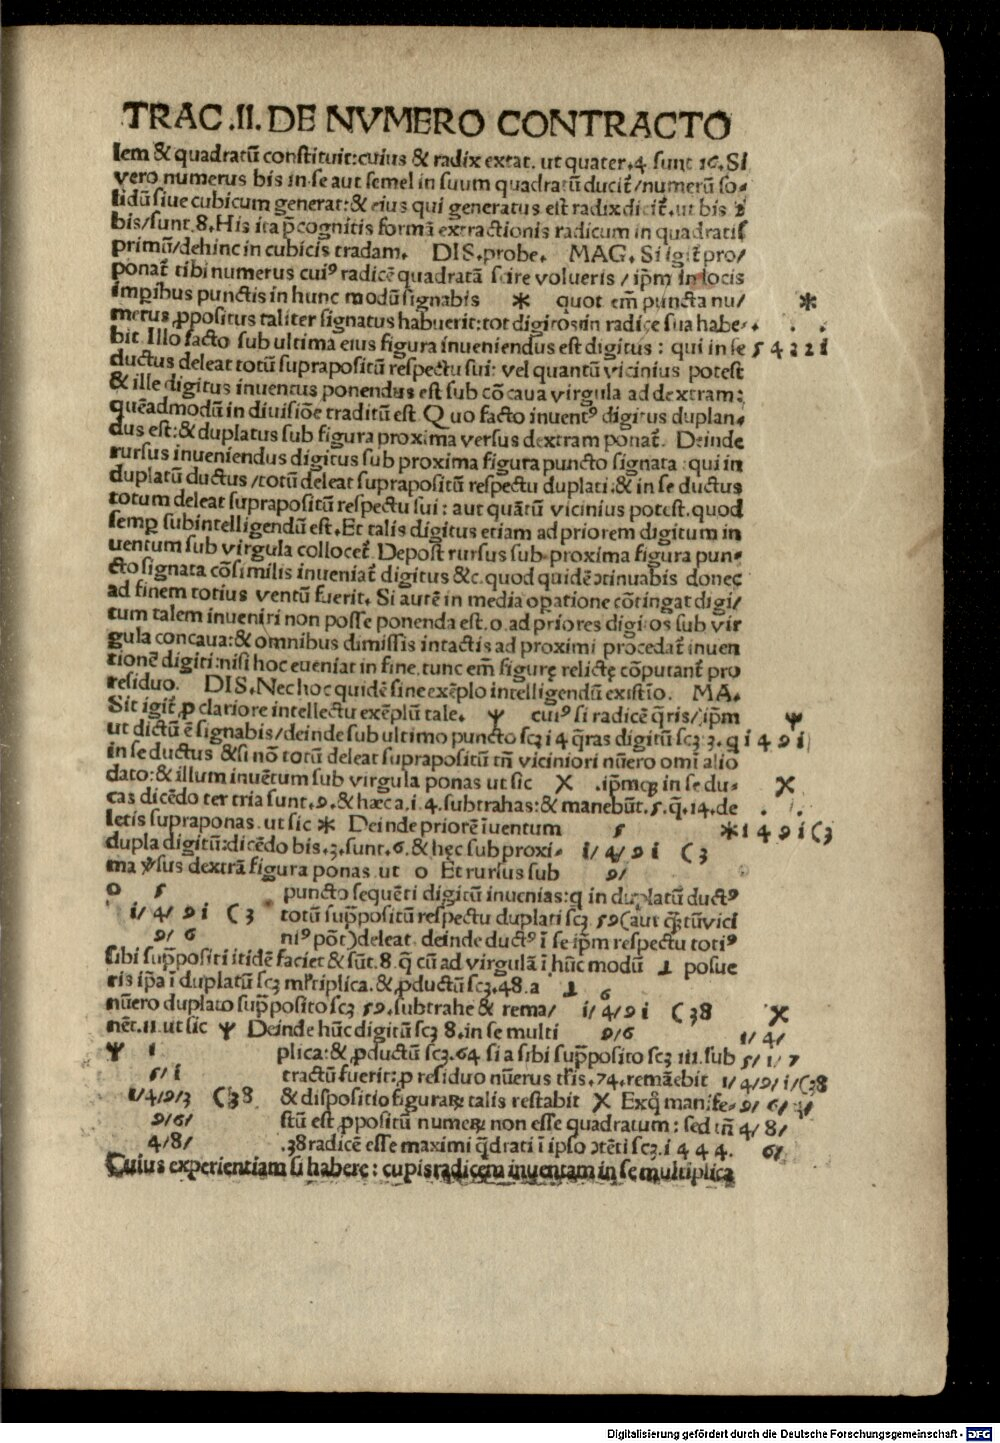 TRAC .II. DE NVMERO CONTRACTO
lem & quadratū constituit: cuius & radix extat. ut quater.4 sunt 16. Si
vero numerus bis in se aut semel in suum quadratū ducit̄/numerū so-
lidū siue cubicum generat: & eius qui generatus est radix dicit̄. ut bis 2
bis/sunt.8. His ita p̄cognitis formā extractionis radicum in quadratis
primū/dehinc in cubicis tradam. DIS. probe. MAG. Si igit̄ pro/
ponat̄ tibi numerus cuiꝰ radicē quadratā scire volueris / ip̄m in locis
impībus punctis in hunc modū signabis * quot em̄ puncta nu/ *
merus ꝓpositus taliter signatus habuerit: tot digitos in radice sua habe- . . .
bit. Illo facto sub ultima eius figura inueniendus est digitus : qui in se 5 4 2 2 1
ductus deleat totū suprapositū respectu sui: vel quantū vicinius potest
& ille digitus inuentus ponendus est sub cōcaua virgula ad dextram:
quēadmodū in diuisiōe traditū est. Quo facto inuentꝰ digitus duplan-
dus est: & duplatus sub figura proxima versus dextram ponat̄. Deinde
rursus inueniendus digitus sub proxima figura puncto signata : qui in
duplatū ductus /totū deleat suprapositū respectu duplati: & in se ductus
totum deleat suprapositū respectu sui : aut quātū vicinius potest. quod
semp̄ subintelligendū est. Et talis digitus etiam ad priorem digitum in
uentum sub virgula collocet̄. Depost rursus sub proxima figura pun-
cto signata cōsimilis inueniat̄ digitus &c. quod quidē ↄtinuabis donec
ad finem totius ventū fuerit. Si autē in media opatione cōtingat digi/
tum talem inueniri non posse ponenda est.o. ad priores digitos sub vir
gula concaua: & omnibus dimissis intactis ad proximi procedat̄ inuen
tionē digiti: nisi hoc eueniat in fine. tunc em̄ figurę relictę cōputant̄ pro
residuo. DIS. Nec hoc quidē sine exēplo intelligendū existīo. MA.
Sit igit̄ ꝓ clariore intellectu exēplū tale. Ψ cuiꝰ si radicē q̄ris/ip̄m Ψ
ut dictū ē signabis/deinde sub ultimo puncto scꝫ i 4 q̄ras digitū scꝫ 3. q 1 4 9 1
in se ductus & si nō totū deleat suprapositū tn̄ viciniori nūero omī alio
dato: & illum inuētum sub virgula ponas ut sic X .ip̄mqꝫ in se du- X
cas dicēdo ter tria sunt.9. & hæc a.1.4. subtrahas: & manebūt.5.q̄.14. de . .
letis supraponas. ut sic * Deinde priorē īuentum 5 * 1 4 9 1 (3
dupla digitū: dicēdo bis.3. sunt.6. & hęc sub proxi- 1/ 4/ 9 1 (3
ma v̄sus dextrā figura ponas ut o Et rursus sub 9/
o 5 puncto sequēti digitū inuenias: q in duplatū ductꝰ
1/ 4/ 9 1 (3 totū supp̄ositū respectu duplati scꝫ 59 (aut q̄tū vici
9/ 6 niꝰ pōt) deleat. deinde ductꝰ ī se ip̄m respectu totiꝰ
sibi supp̄ositi itidē faciet & sūt.8. q̄ cū ad virgulā ī hūc modū ⊥ posue
ris ip̄a ī duplatū scꝫ mĺtiplica. & ꝓductū scꝫ.48. a ⊥ 6
nūero duplato supp̄osito scꝫ 59. subtrahe & rema/ 1/ 4/ 9 1 (38 X
nēt.11. ut sic Ψ Deinde hūc digitū scꝫ 8. in se multi 9/6 1/ 4/
Ψ 1 plica: & ꝓductū scꝫ.64 si a sibi supp̄osito scꝫ 111. sub 5/ 1/ 7
5/ 1 tractū fuerit: ꝓ residuo nūerus tĺis.74. remāebit 1/ 4/9/ 1/(38
1/4/9/3 (38 & dispositio figuraꝝ talis restabit X Ex q̄ manife- 9/ 6/
9/6/ stū est ꝓpositū numeꝝ non esse quadratum : sed tn̄ 4/ 8/
4/8/ .38 radicē esse maximi q̄drati ī ipso ↄtēti scꝫ.1 4 4 4. 6/
Cuius experientiam si habere : cupis radicem inuentam in se multiplica
Digitalisierung gefördert durch die Deutsche Forschungsgemeinschaft - DFG